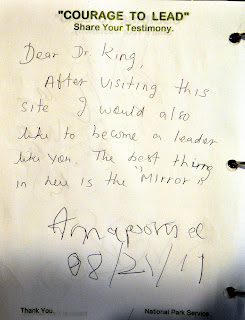 "COURAGE TO LEAD"
Share Your Testimony.
Dear Dr. King,
After visiting this
site I would also
like to become a leader
like you. The best thing
in here is the 'Mirror'
08/21/11
Thank You.
National Park Service